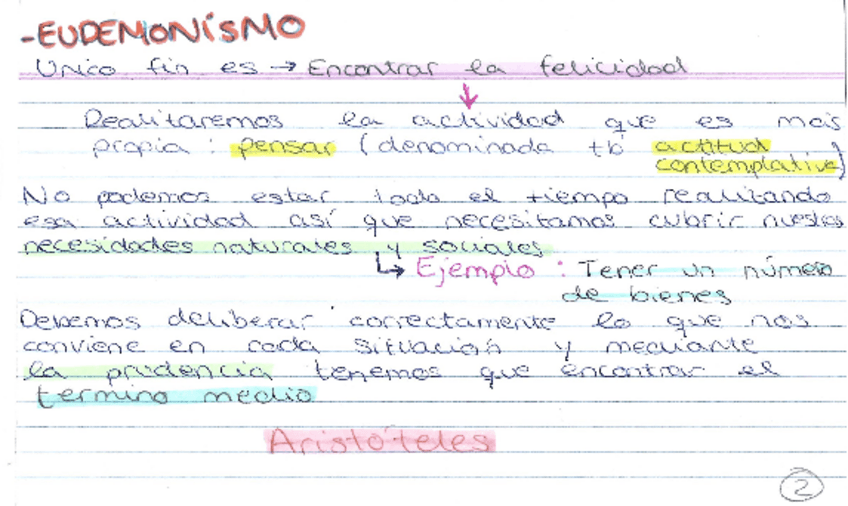 -EUDEMONÍSMO
Unico fin es → Encontrar la felicidad
↓
Realitaremos la actividad que es mas
propia : pensar (denominada tb actitud
contemplativa)
No podemos estar todo el tiempo realitando
esa actividad así que necesitamos cubrir nuestras
necesidades naturales y sociales
↳ Ejemplo : Tener un número
de bienes
Debemos deliberar correctamente lo que nos
conviene en cada situación y mediante
la prudencia tenemos que encontrar el
termino medio
Aristóteles
2